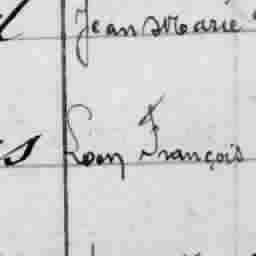 Jean Marie
Léon François